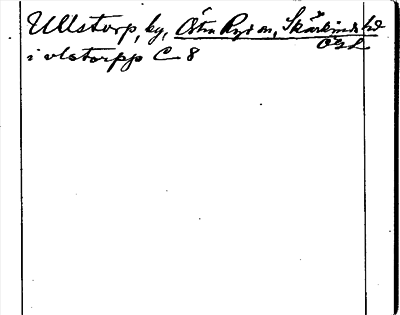 Ullstorp, by, Östra Ryd sn, Skärkinds hd
ÖgL
i vlstorpp C 8